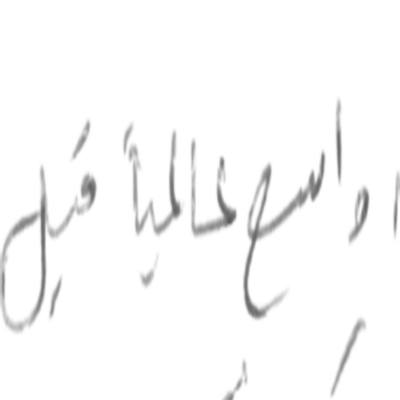 واسع عالمياً قبل